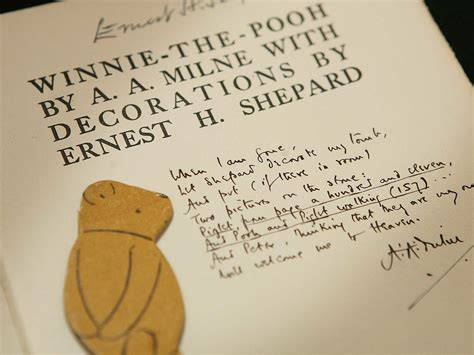 Ernest H.
WINNIE-THE-POOH
BY A. A. MILNE WITH
DECORATIONS BY
ERNEST H. SHEPARD
When I am gone,
Let Shepard decorate my tomb,
And put (if there is room)
Two pictures on the stone:
Piglet, from page a hundred and eleven,
And Pooh and Piglet walking (157) ...
And Peter, thinking that they are my
Will welcome me to Heaven.
A.A. Milne